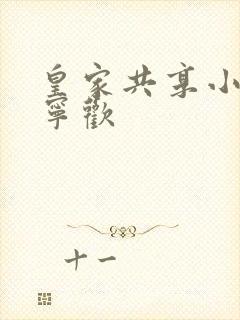 皇家共享小
寧歡
十一